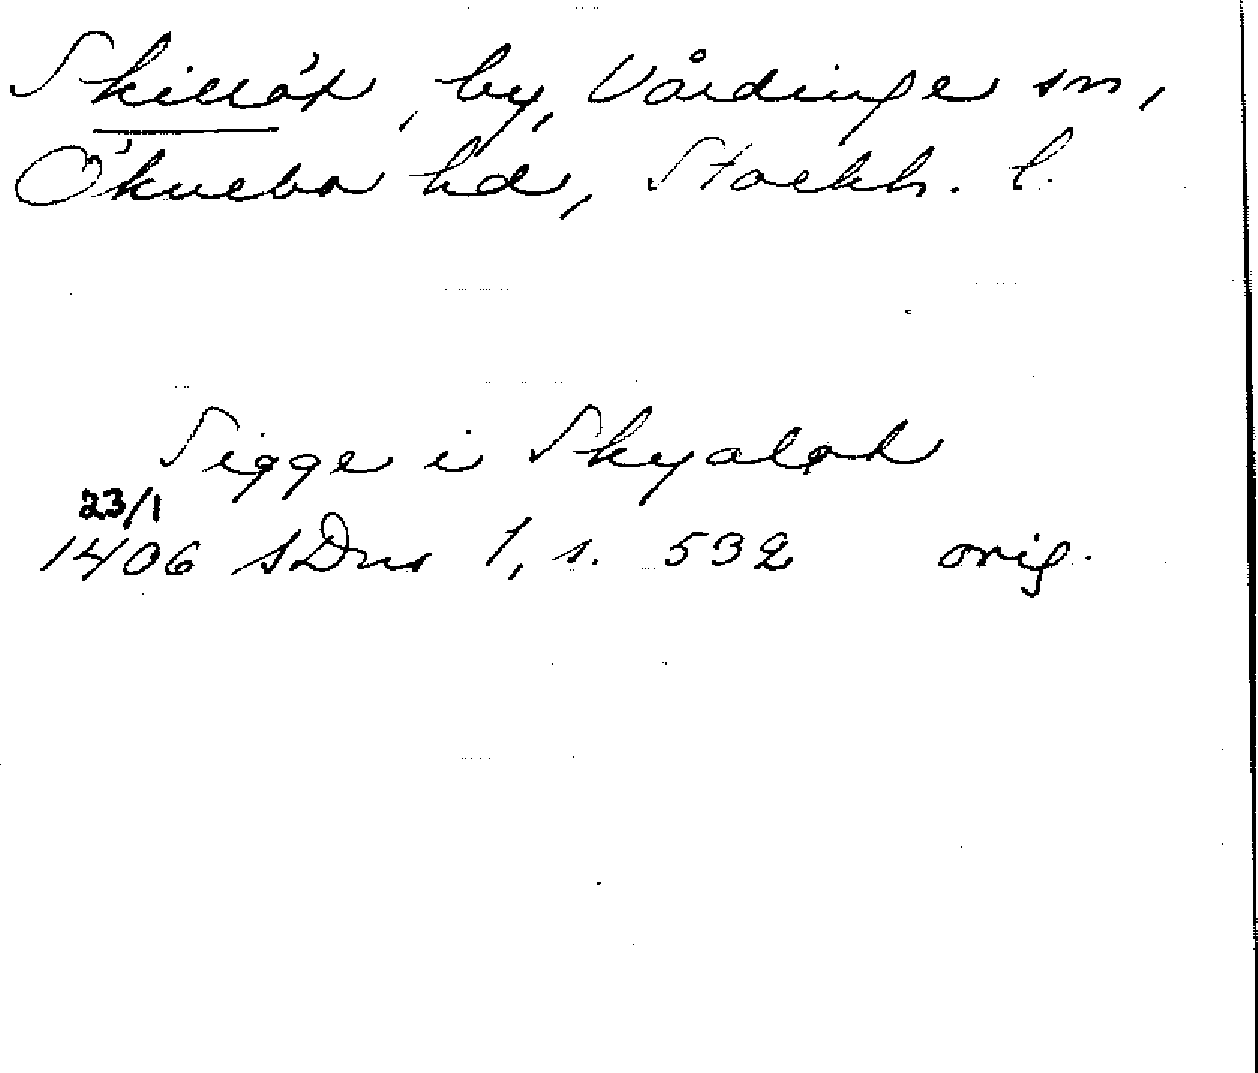 Skillöt, by, Vårdinge sn,
Öknebo hd, Stockh. l.
Sigge i Skyaløt
23/1
1406 SDns 1, s. 532 orig.